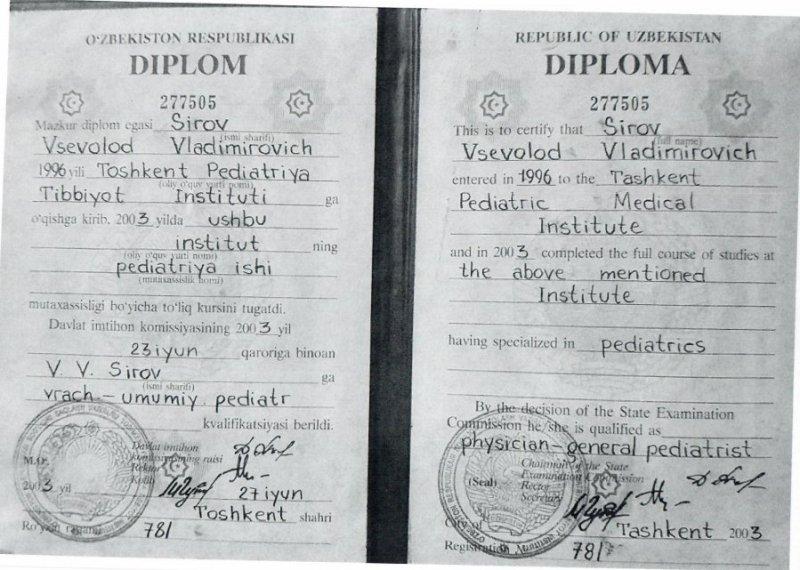 O‘ZBEKISTON RESPUBLIKASI
DIPLOM
277505
Mazkur diplom egasi Sirov
(ismi sharifi)
Vsevolod Vladimirovich
1996 yili Toshkent Pediatriya
(oliy o‘quv yurti nomi)
Tibbiyot Instituti ga
o‘qishga kirib. 2003 yilda ushbu
institut ning
(oliy o‘quv yurti nomi)
pediatriya ishi
(mutaxassislik nomi)
mutaxassisligi bo‘yicha to‘liq kursini tugatdi.
Davlat imtihon komissiyasining 2003 yil
23 iyun qaroriga binoan
V. V. Sirov ga
(ismi sharifi)
vrach – umumiy pediatr
kvalifikatsiyasi berildi.
Davlat imtihon
komissiyasining raisi
M.O. Rektor
Kotib
2003 yil 27 iyun
Toshkent shahri
Ro‘yxat raqami 781
REPUBLIC OF UZBEKISTAN
DIPLOMA
277505
This is to certify that Sirov
(full name)
Vsevolod Vladimirovich
entered in 1996 to the Tashkent
Pediatric Medical
Institute
and in 2003 completed the full course of studies at
the above mentioned
Institute
having specialized in pediatrics
By the decision of the State Examination
Commission he/she is qualified as
physician – general pediatrist
Chairman of the State
Examination Commission
(Seal) Rector
Secretary
City of Tashkent 2003
Registration Number 781